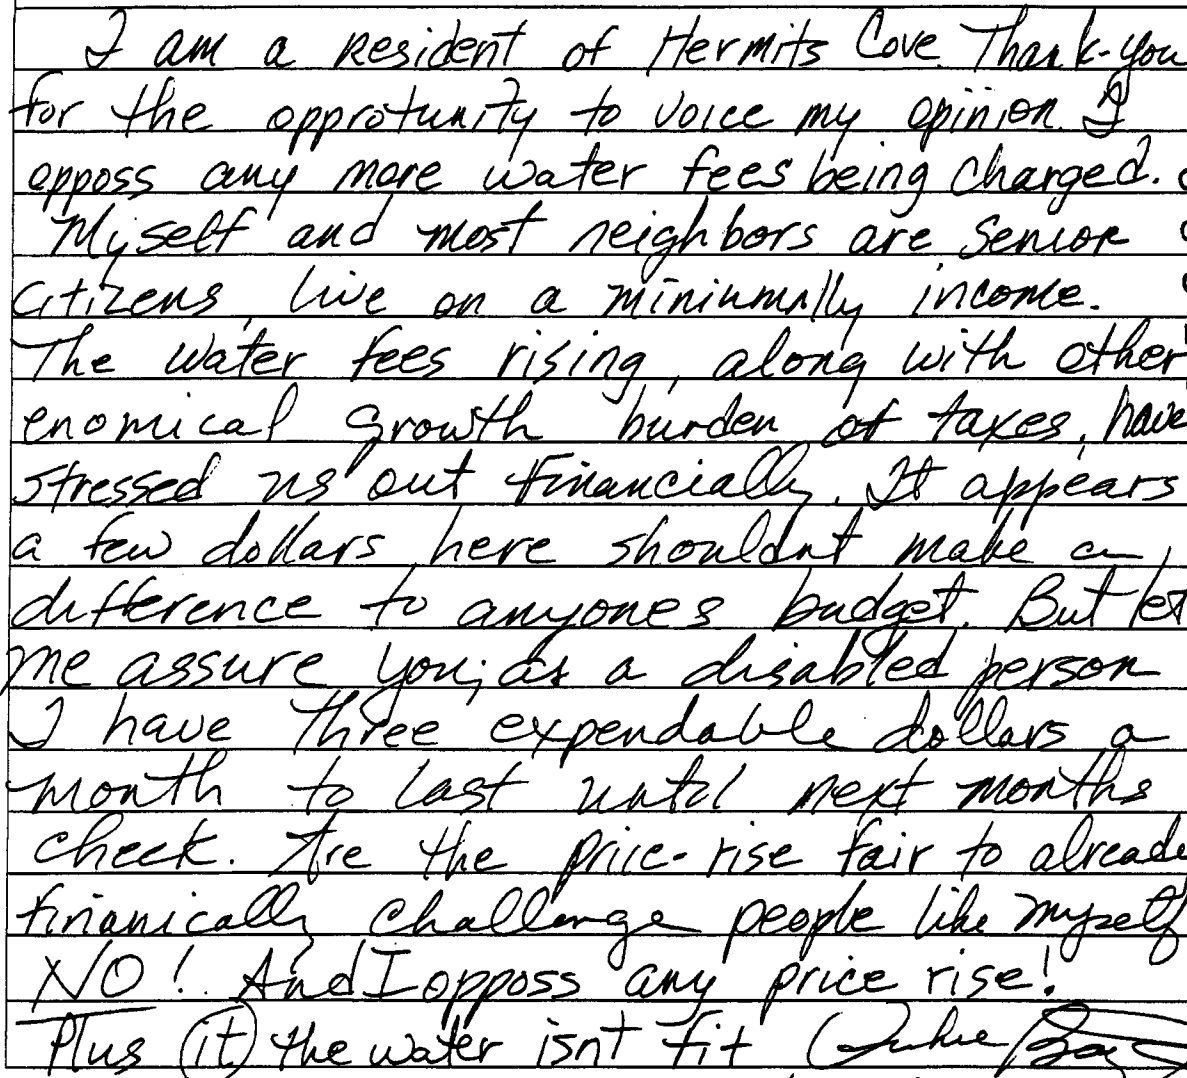 I am a Resident of Hermits Cove. Thank-you
for the opprotunity to voice my opinion. I
opposs any more water fees being charged.
Myself and most neighbors are senior
citizens, live on a miniumnlly income.
The water fees rising, along with other
enomical growth burden of taxes, have
stressed us out financially. It appears
a few dollars here shouldnt make a
difference to anyones budget. But let
me assure you; as a disabled person
I have three expendable dollars a
month to last until next months
check. Are the price-rise fair to already
finianically challenge people like myself
NO! And I opposs any price rise!
Plus (it) the water isnt fit